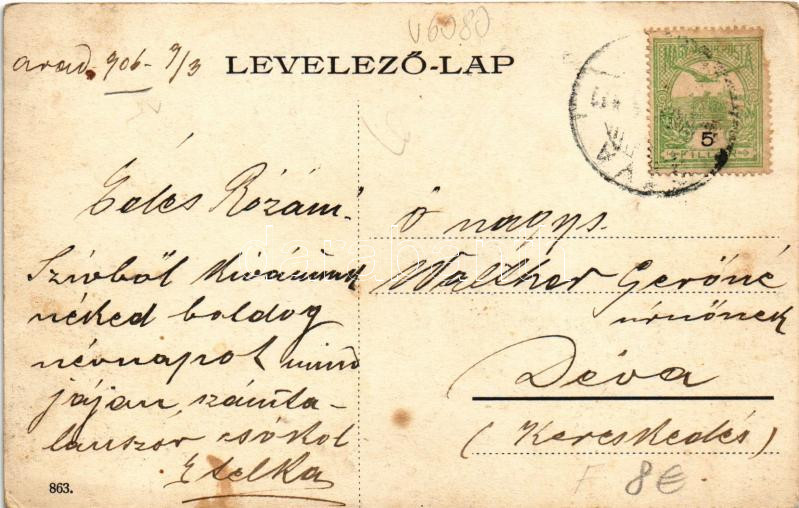 V6080
Arad. 906. 9/3
LEVELEZŐ-LAP
MAGYAR KIR. POSTA
5
FILLÉR
Édes Rózám!
Szívből kívánunk
néked boldog
névnapot mind
jájan, számta-
lanszor csókol
Etelka
ő nagys.
Walther Gerőné
úrnőnek
Déva
(Kereskedés)
863.
F 8€